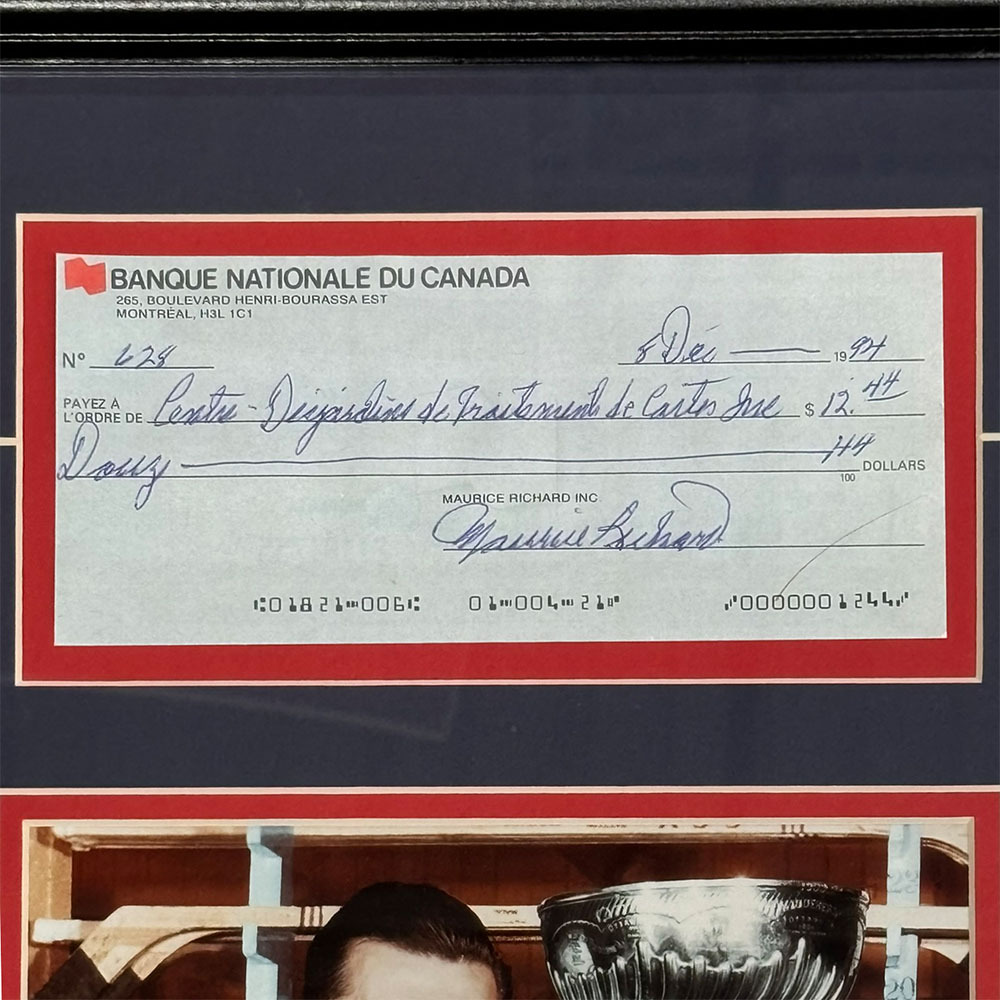 BANQUE NATIONALE DU CANADA
265, BOULEVARD HENRI-BOURASSA EST
MONTRÉAL, H3L 1C1
N° 628 8 Déc 1994
PAYEZ À
L'ORDRE DE Centre - Desjardins de Traitement de Cartes Inc $ 12.44
Douze 44/100 DOLLARS
MAURICE RICHARD INC.
Maurice Richard
⑆01821⑉006⑆ 01⑉004⑉21⑈ ⑇0000001244⑇